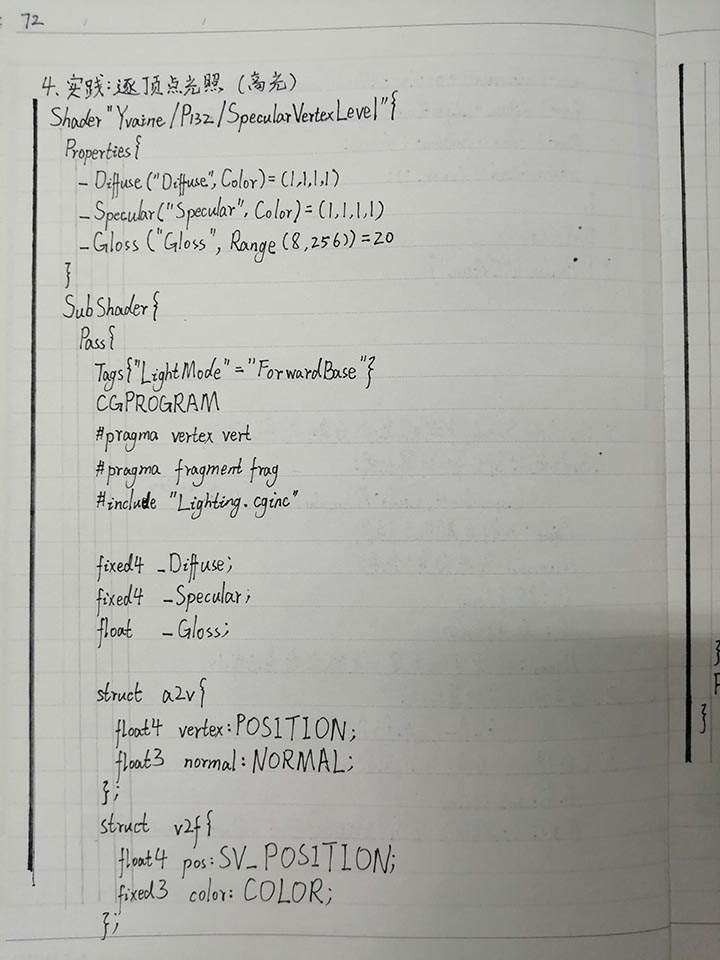 72
4、实践:逐顶点光照(高光)
Shader"Yvaine/P132/SpecularVertexLevel"{
Properties{
_Diffuse("Diffuse",Color)=(1,1,1,1)
_Specular("Specular",Color)=(1,1,1,1)
_Gloss("Gloss",Range(8,256))=20
}
SubShader{
Pass{
Tags{"LightMode"="ForwardBase"}
CGPROGRAM
#pragma vertex vert
#pragma fragment frag
#include "Lighting.cginc"
fixed4 _Diffuse;
fixed4 _Specular;
float _Gloss;
struct a2v{
float4 vertex:POSITION;
float3 normal:NORMAL;
};
struct v2f{
float4 pos:SV_POSITION;
fixed3 color:COLOR;
};
}
F
}